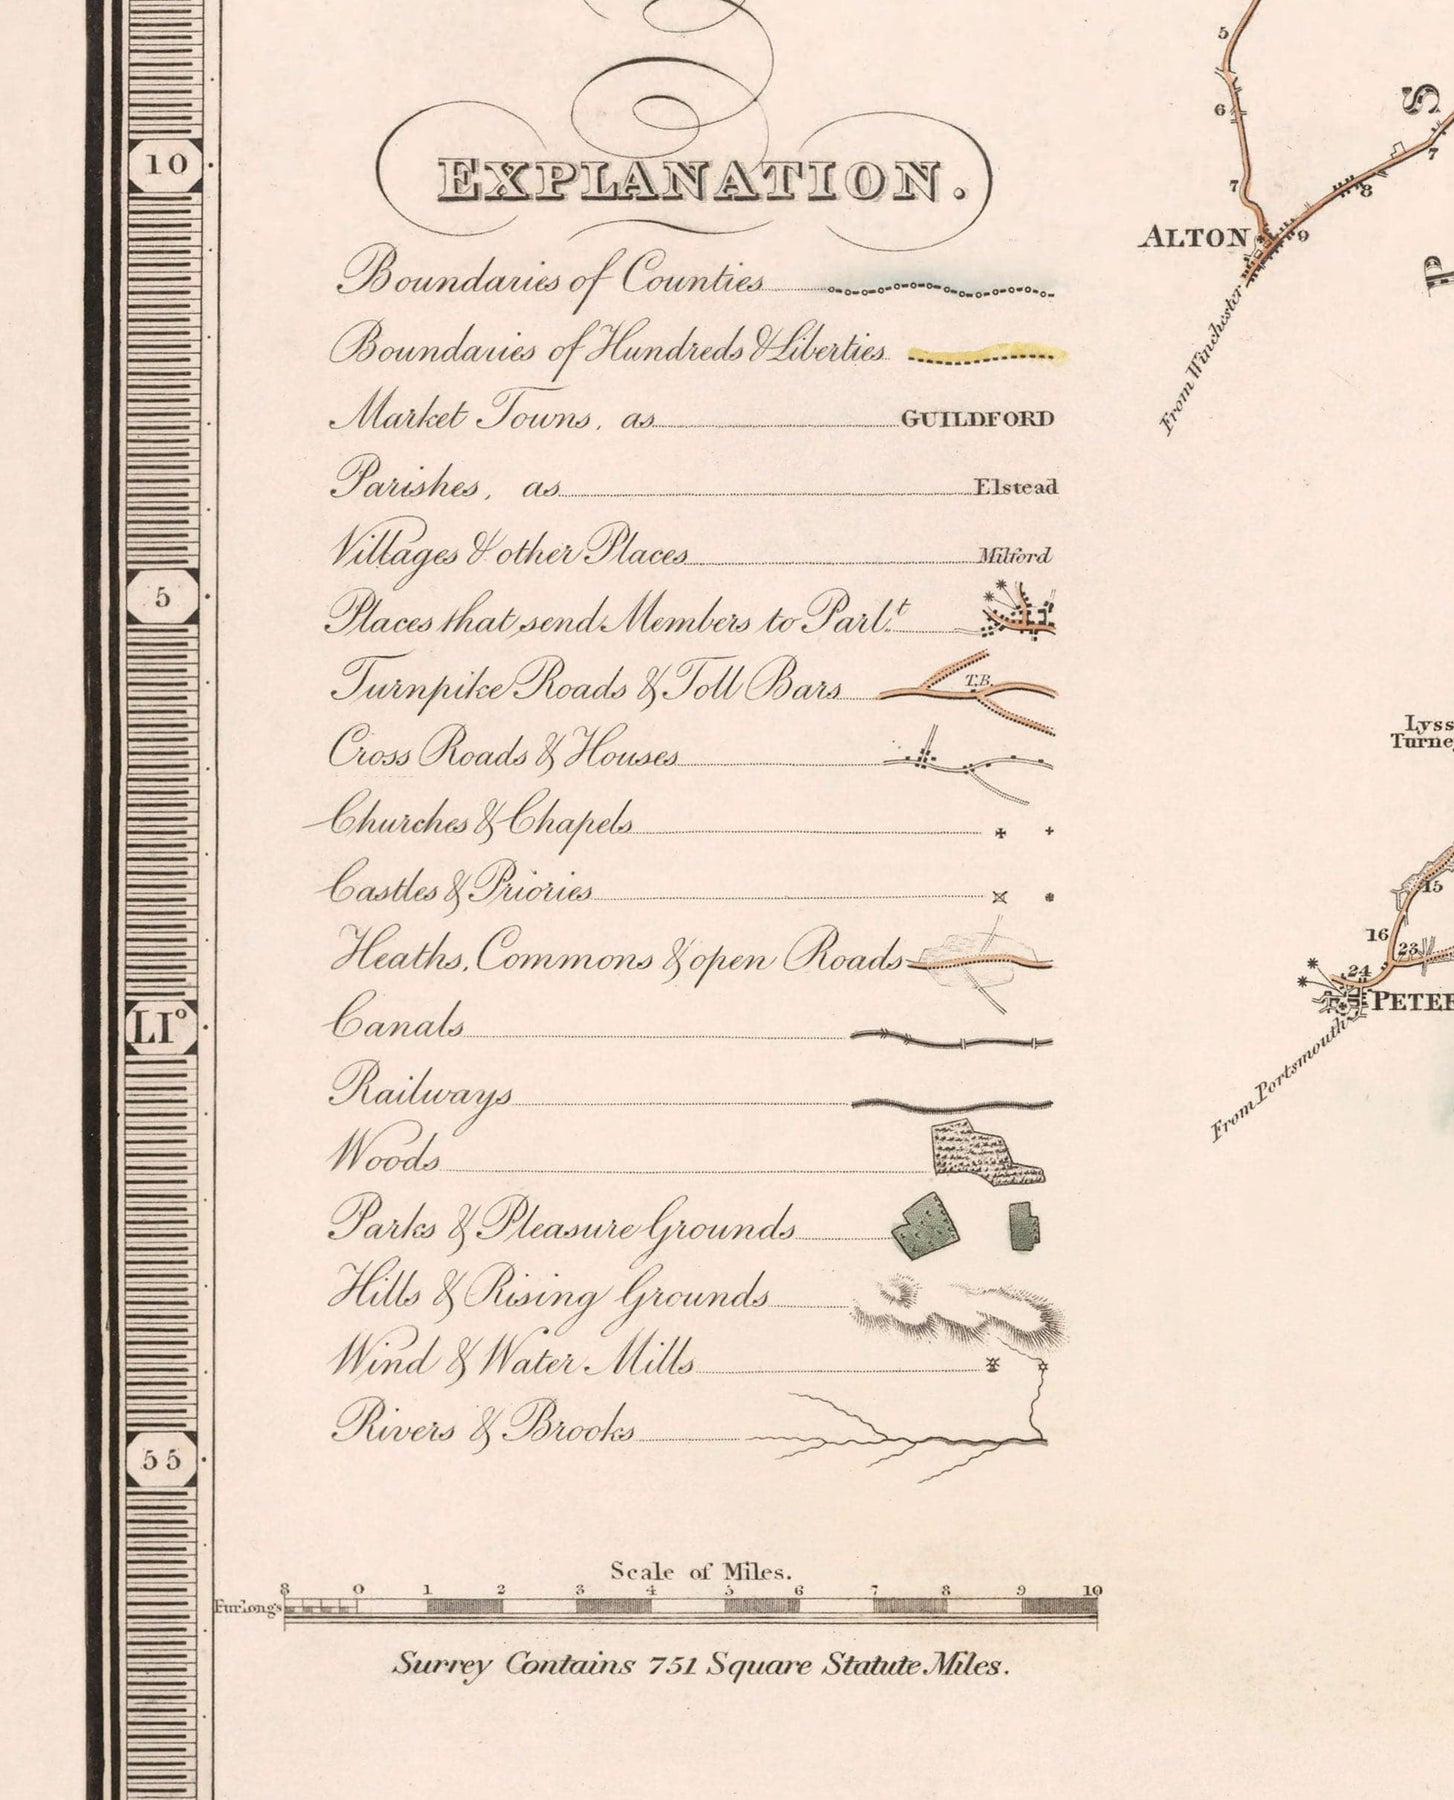 EXPLANATION.
Boundaries of Counties
Boundaries of Hundreds & Liberties
Market Towns, as GUILDFORD
Parishes, as Elstead
Villages & other Places Milford
Places that send Members to Parl.t
Turnpike Roads & Toll Bars T.B.
Cross Roads & Houses
Churches & Chapels
Castles & Priories
Heaths, Commons & open Roads
Canals
Railways
Woods
Parks & Pleasure Grounds
Hills & Rising Grounds
Wind & Water Mills
Rivers & Brooks
Scale of Miles.
8 0 1 2 3 4 5 6 7 8 9 10
Furlongs
Surrey Contains 751 Square Statute Miles.
10
5
LI°
55
5
6
7
ALTON
9
8
7
S
P
From Winchester
Lyss
Turne
15
16
23
24
PETER
From Portsmouth